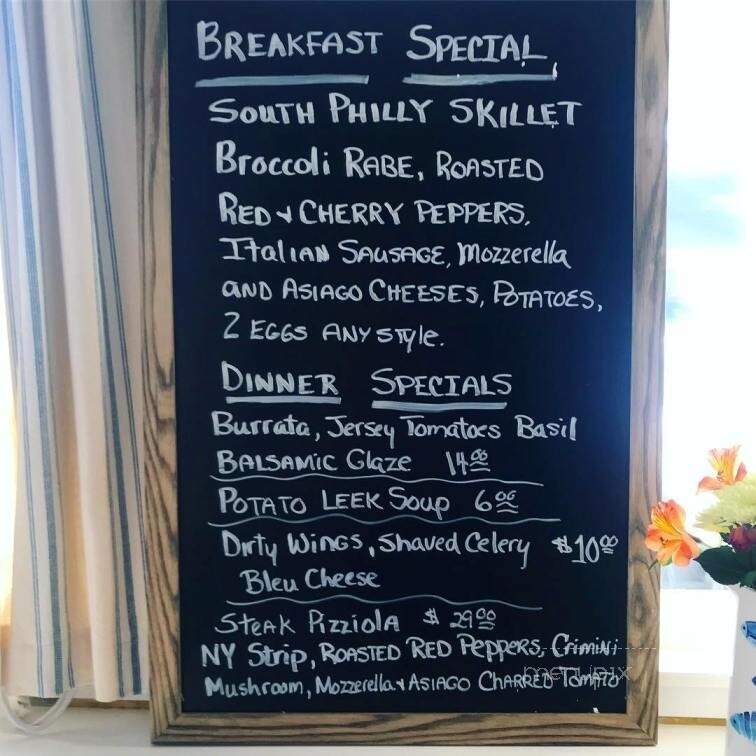 BREAKFAST SPECIAL
SOUTH PHILLY SKILLET
Broccoli RABE, ROASTED
RED & CHERRY PEPPERS,
Italian SAUSAGE, Mozzerella
and ASIAGO CHEESES, POTATOES,
2 EGGS ANY Style.
DINNER SPECIALS
Burrata, Jersey Tomatoes Basil
BALSAMIC Glaze 14.00
POTATO LEEK Soup 6.00
Dirty Wings, Shaved Celery $10.00
Bleu Cheese
Steak Pizziola $29.00
NY Strip, ROASTED RED Peppers, Crimini
Mushroom, Mozzerella & ASIAGO CHARRED TOMATO
menupix